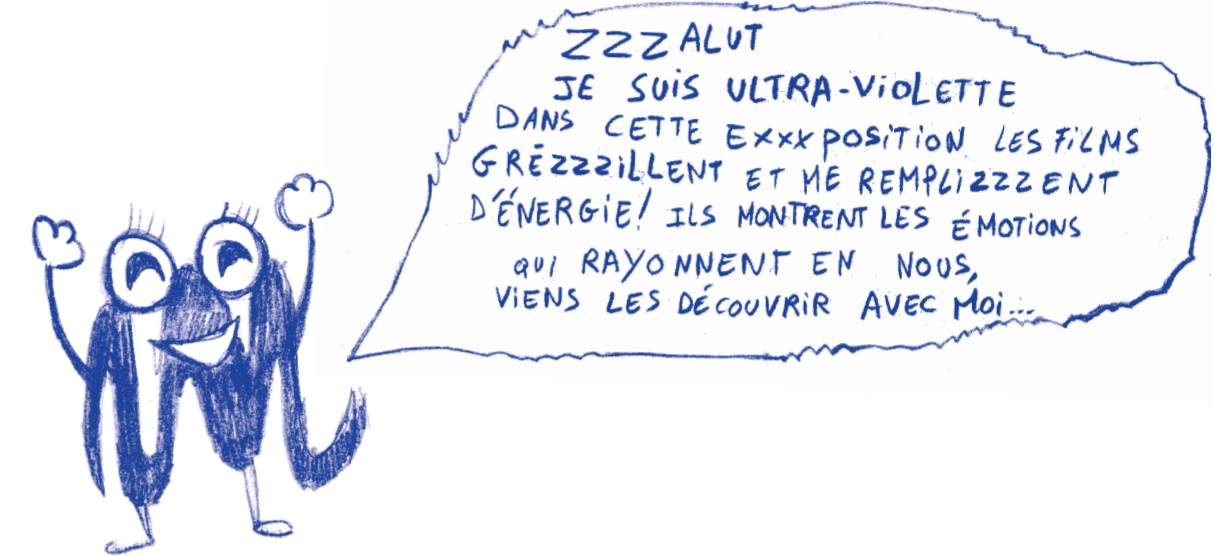 ZZZALUT
JE SUiS ULTRA-ViOLETTE
DANS CETTE EXXXPOSiTiON LES FiLMS
GRÉZZZiLLENT ET ME REMPLiZZZENT
D'ÉNERGiE! ILS MONTRENT LES ÉMOTiONS
QUI RAYONNENT EN NOUS,
ViENS LES DÉCOUVRiR AVEC MOi...